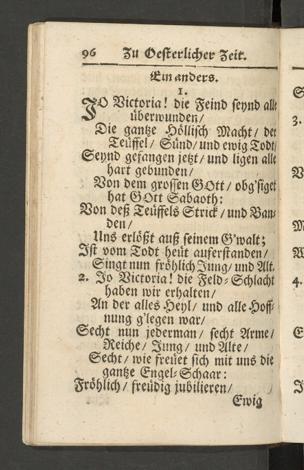 96 Zu Oesterlicher Zeit.
Ein anders.
1.
JO Victoria! die Feind seynd all
überwunden/
Die gantze Höllisch Macht/ der
Teüffel/ Sünd/ und ewig Todt/
Seynd gefangen jetzt/ und ligen alle
hart gebunden/
Von dem grossen GOtt/ obg'siget
hat GOtt Sabaoth:
Von deß Teüffels Strick/ und Ban-
den/
Uns erlößt auß seinem G'walt;
Jst vom Todt heüt auferstanden/
Singt nun fröhlich Jung/ und Alt.
2. Jo Victoria! die Feld-Schlacht
haben wir erhalten/
An der alles Heyl/ und alle Hoff-
nung g'legen war/
Secht nun jederman/ secht Arme/
Reiche/ Jung/ und Alte/
Secht/ wie freüet sich mit uns die
gantze Engel-Schaar:
Fröhlich/ freüdig jubilieren/
Ewig
3.
4.